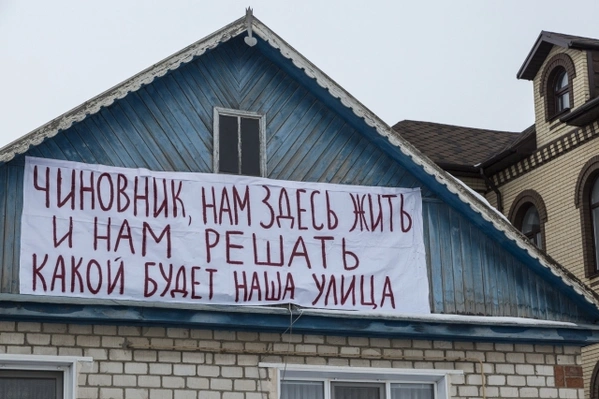 ЧИНОВНИК, НАМ ЗДЕСЬ ЖИТЬ
И НАМ РЕШАТЬ
КАКОЙ БУДЕТ НАША УЛИЦА